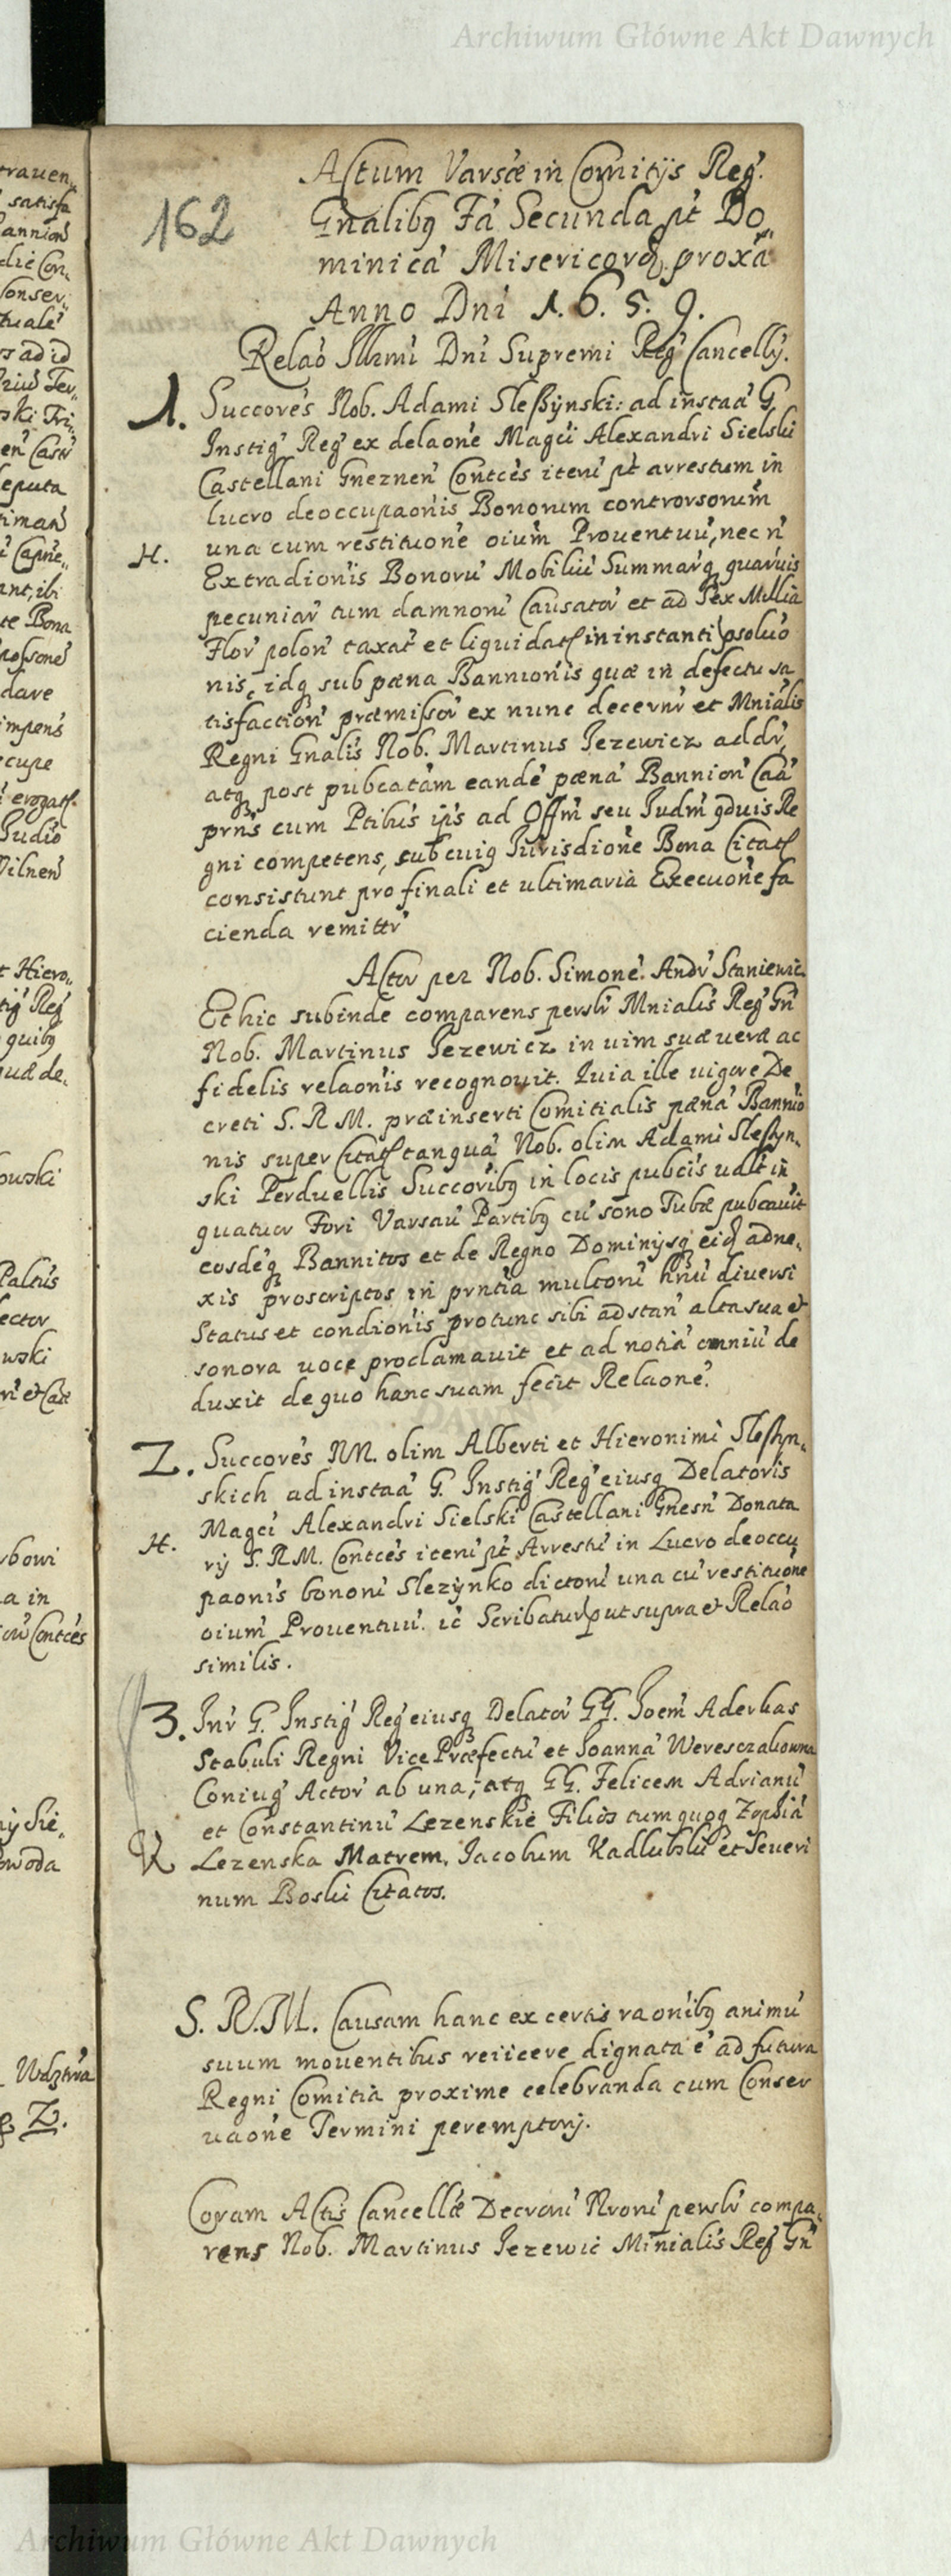 Archiwum Główne Akt Dawnych
162
Actum Varsæ in Comitijs Reg.
Gnalibq Fa Secunda pt Do„
minica Misericord. proxa
Anno Dni 1. 6. 5. 9.
Relao Illrmi Dni Supremi Reg Cancellj.
1. Succores Nob. Adami Sleßynski: ad instaa G
Instig Reg ex delaone Magci Alexandri Sielski
Castellani Gneznen Contces item pt arrestum in
lucro deoccupaonis Bonorum controrsorum
H.
una cum restituone oium Prouentuu, nec n
Extradionis Bonoru Mobiliu Summarq quaruis
pecuniar tum damnoru Causator et ad Sex Millia
Flor polon taxat et liquidat in instanti psoluo
nis, idq sub pæna Bannionis quæ in defectu sa
tisfaction præmissor ex nunc decernr et Mnialis
Regni Gnalis Nob. Martinus Jezewicz addr,
atq post pubcatam eande pæna Bannion Caa
prns cum Ptibus ijs ad Offm seu Judm qduis Re
gni competens, sub cuig Jurisdione Bona Citat
consistunt pro finali et ultimaria Execuone fa
cienda remittr
Actor per Nob. Simone Andr Staniewic
Et hic subinde comparens persbr Mnialis Reg Gn
Nob. Martinus Jezewicz in uim suæ ueræ ac
fidelis relaonis recognouit. Quia ille uigore De
creti S. R M. præinserti Comitialis pæna Bannio
nis super Citat tanqua Nob. olim Adami Sleßyn„
ski Perduellis Succoribq in locis pubcis ualt in
quatuor Fori Varsau Partibq cu sono Tubæ pubcauit
eosdeq Bannitos et de Regno Dominijsq eiq adne„
xis proscriptos in prntia multoru hnu diuersi
Status et condionis protunc sibi adstan alta sua et
sonora uoce proclamauit et ad notia omniu de
duxit de quo hanc suam fecit Relaone.
2. Succores NN. olim Alberti et Hieronimi Sleßyn„
skich ad instaa G. Instig Reg eiusq Delatoris
Magci Alexandri Sielski Castellani Gnesn Donata
H.
rij S. R M. Contces item pt Arrestu in Lucro deoccu
paonis bonoru Slezynko dictoru una cu restituone
oium Prouentuu. ic Scribatur put supra et Relao
similis.
3. Inr G. Instig Reg eiusq Delator GG. Joem Aderkas
Stabuli Regni Vice Præfectu et Joanna Weresczakowna
Coniug Actor ab una, atq GG. Felicem Adrianu
et Constantinu Lezenskie Filios tum quoq Zophia
Lezenska Matrem, Jacobum Kadlubski et Seueri
num Boski Citatos.
S. R. M. Causam hanc ex certis raonibq animu
suum mouentibus reiicere dignata e ad futura
Regni Comitia proxime celebranda cum Conser
uaone Termini peremptorj.
Coram Actis Cancellæ Decroru Nroru persbr compa„
rens Nob. Martinus Jezewic Minialis Reg Gn
Archiwum Główne Akt Dawnych